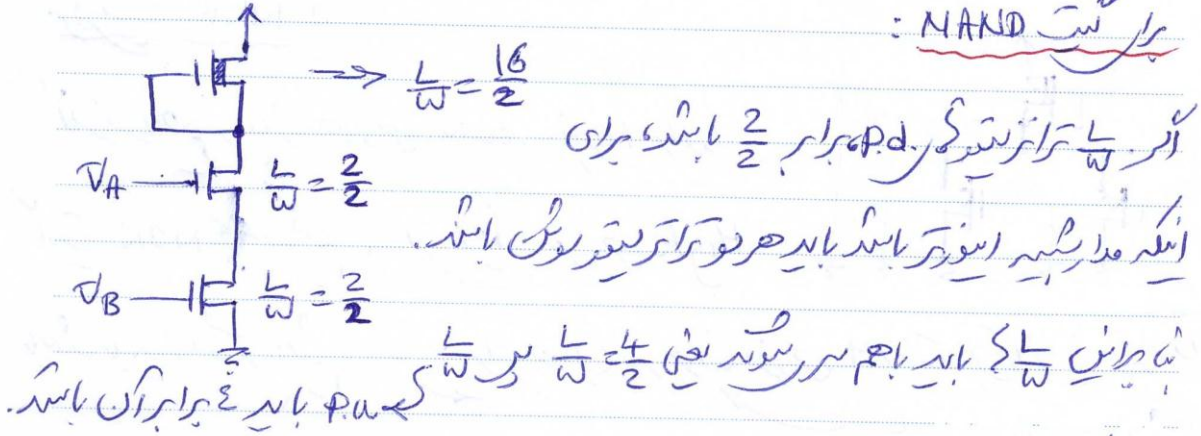 برای گیت NAND :
L/W = 16/2
اگر L/W ترانزیستورهای p.d. برابر 2/2 باشد، برای
V_A L/W = 2/2
اینکه مدار شبیه اینورتر باشد باید هر دو ترانزیستور روشن باشد.
V_B L/W = 2/2
بنابراین L/W ها باید باهم سری شوند یعنی L/W = 4/2 پس L/W
p.u باید ٤ برابر آن باشد.